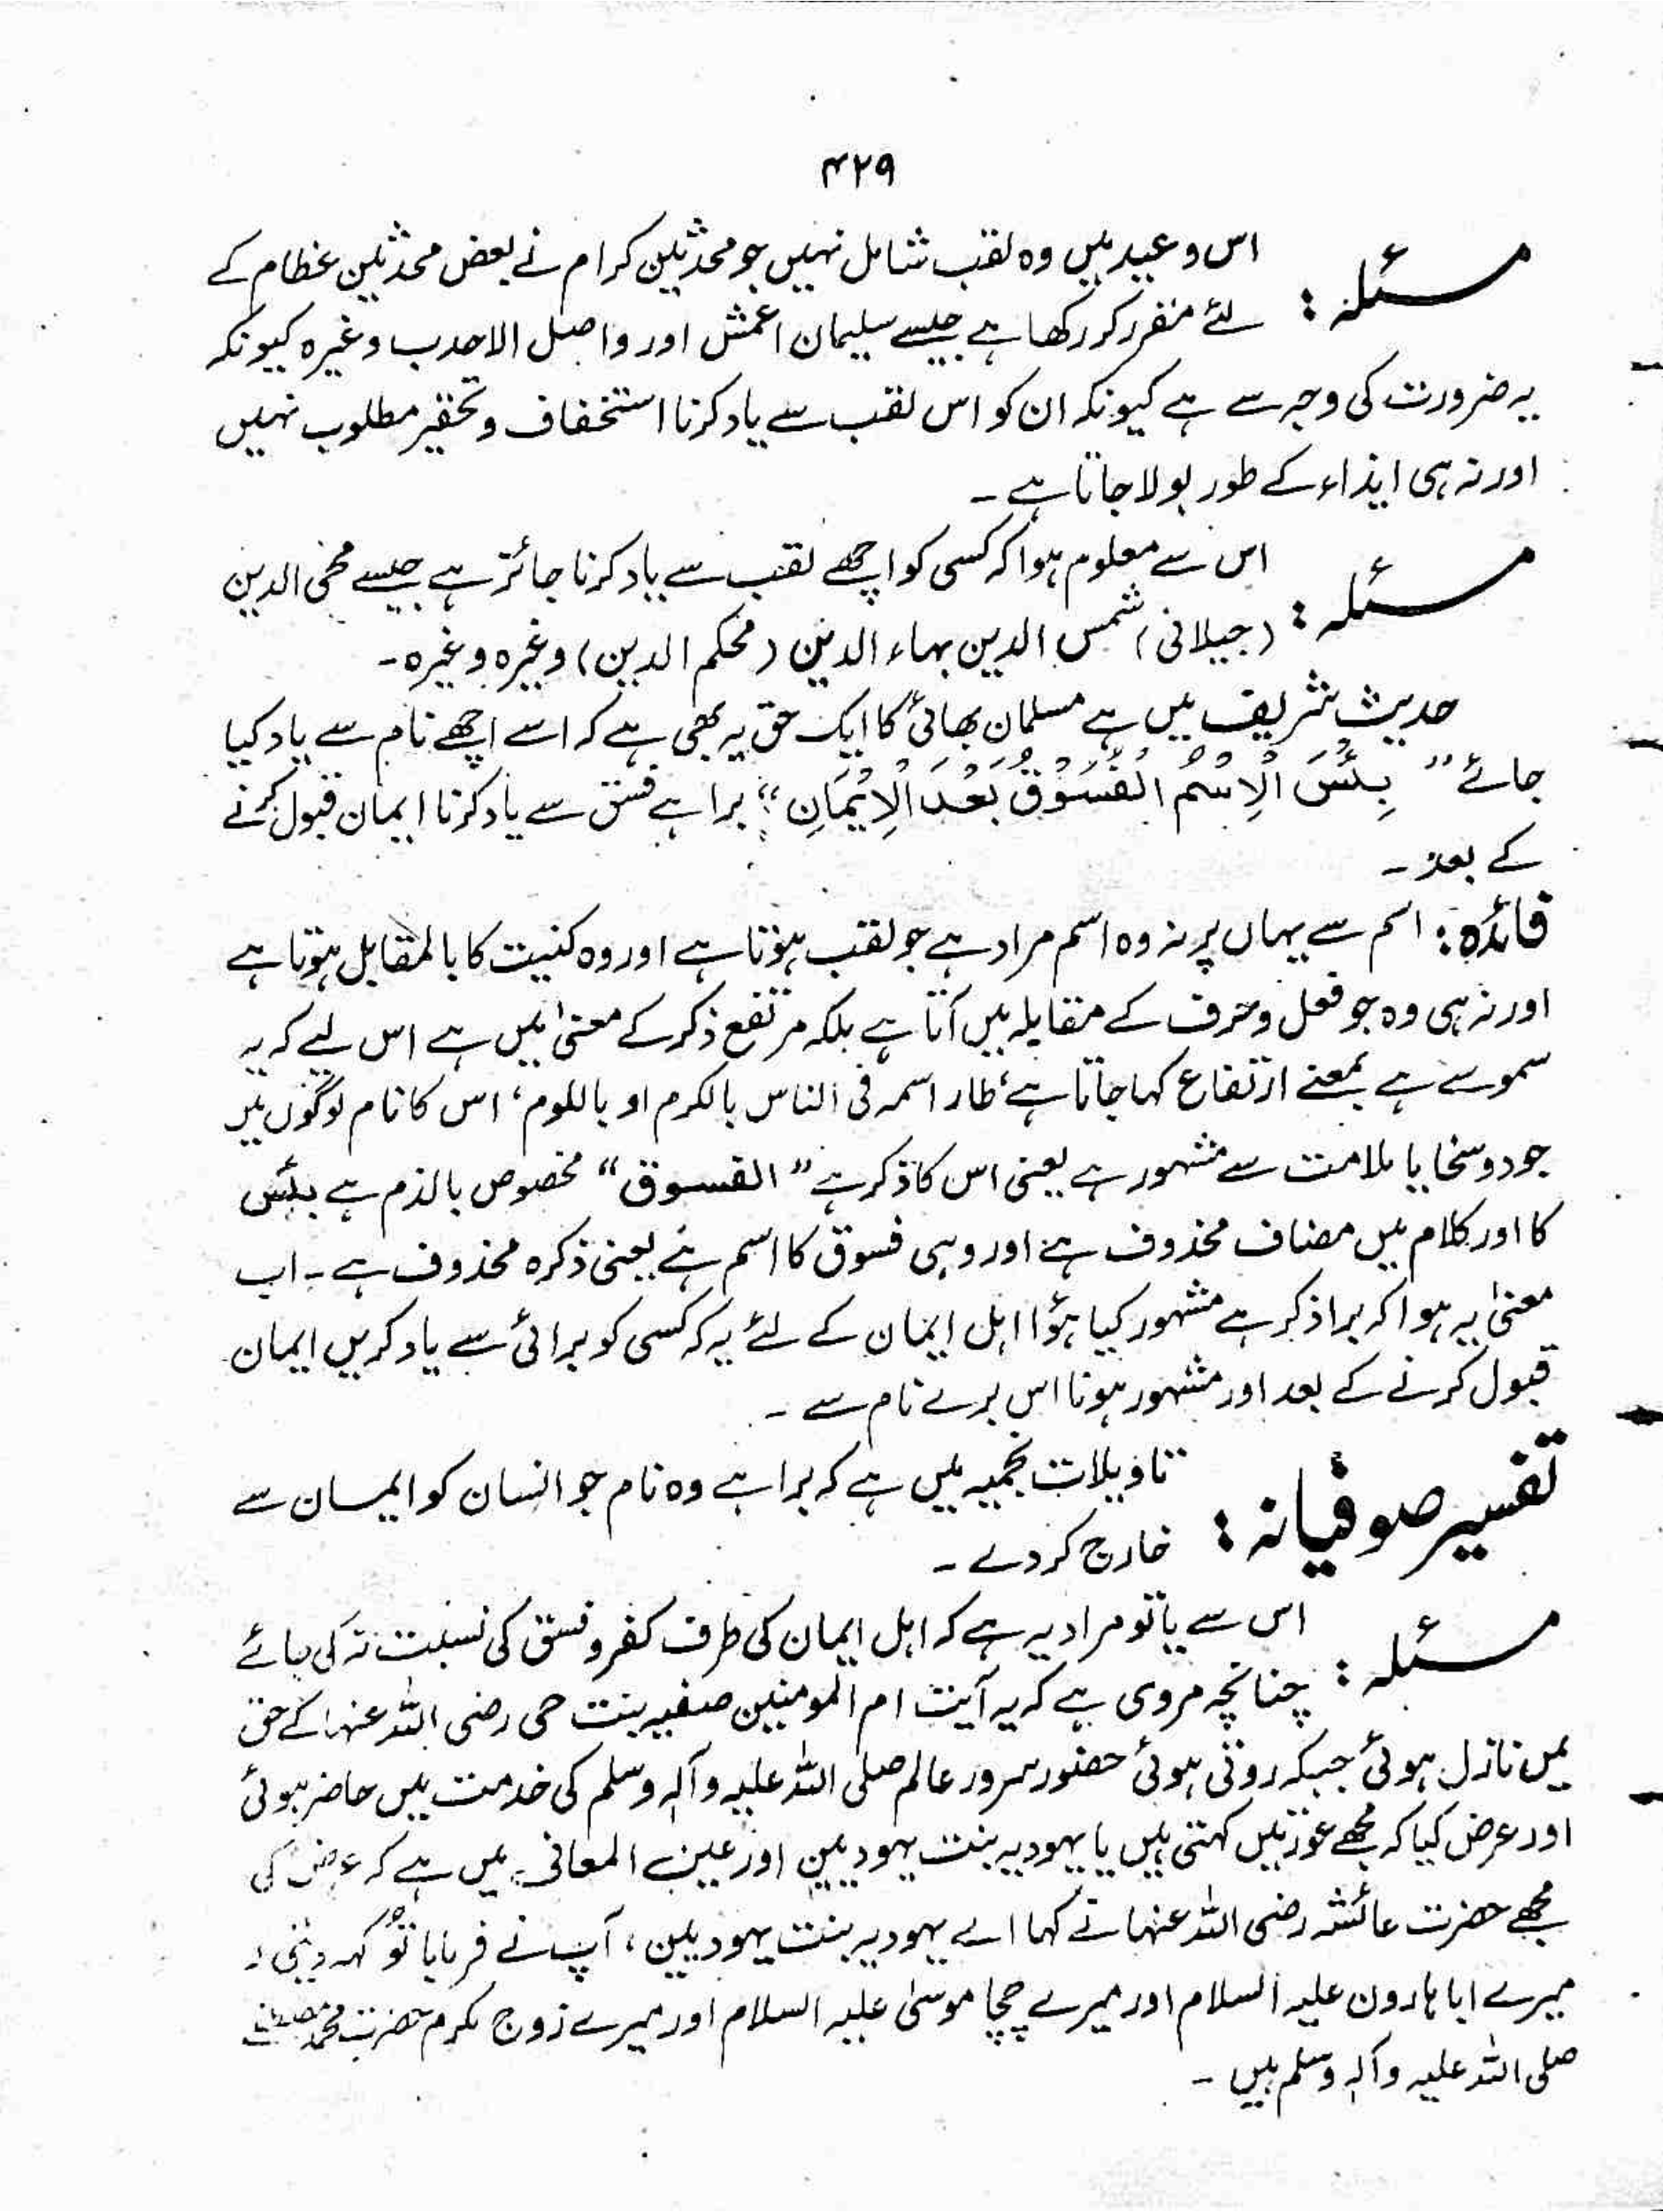 ۴۲۹
مسئلہ : اس وعید میں وہ لقب شامل نہیں جو محدثین کرام نے بعض محدثین عظام کے
لئے مقرر کر رکھا ہے جیسے سلیمان اعمش اور واصل الاحدب وغیرہ کیونکہ
یہ ضرورت کی وجہ سے ہے کیونکہ ان کو اس لقب سے یاد کرنا استخفاف و تحقیر مطلوب نہیں
اور نہ ہی ایذاء کے طور بولا جاتا ہے ۔
مسئلہ : اس سے معلوم ہوا کہ کسی کو اچھے لقب سے یاد کرنا جائز ہے جیسے محی الدین
(جیلانی) شمس الدین بہاء الدین (محکم الدین) وغیرہ وغیرہ ۔
حدیث شریف میں ہے مسلمان بھائی کا ایک حق یہ بھی ہے کہ اسے اچھے نام سے یاد کیا
جائے " بِئْسَ الْاِسْمُ الْفُسُوْقُ بَعْدَ الْاِیْمَانِ " برا ہے فسق سے یاد کرنا ایمان قبول کرنے
کے بعد ۔
فائدہ : اسم سے یہاں پر نہ وہ اسم مراد ہے جو لقب ہوتا ہے اور وہ کنیت کا بالمقابل ہوتا ہے
اور نہ ہی وہ جو فعل و حرف کے مقابلہ میں آتا ہے بلکہ مرتفع ذکر کے معنیٰ میں ہے اس لیے کہ یہ
سمو سے ہے بمعنے ارتفاع کہا جاتا ہے، طار اسمہ فی الناس بالکرم او باللوم، اس کا نام لوگوں میں
جود و سخا یا ملامت سے مشہور ہے یعنی اس کا ذکر ہے " الفسوق " مخصوص بالذم ہے بئس
کا اور کلام میں مضاف محذوف ہے اور وہی فسوق کا اسم ہے یعنی ذکرہ محذوف ہے ۔ اب
معنیٰ یہ ہوا کہ برا ذکر ہے مشہور کیا ہوٴا اہل ایمان کے لئے یہ کہ کسی کو برائی سے یاد کریں ایمان
قبول کرنے کے بعد اور مشہور ہونا اس برے نام سے ۔
تفسیر صوفیانہ : تاویلات نجمیہ میں ہے کہ برا ہے وہ نام جو انسان کو ایمان سے
خارج کر دے ۔
مسئلہ : اس سے یا تو مراد یہ ہے کہ اہل ایمان کی طرف کفر و فسق کی نسبت نہ کی جائے
چنانچہ مروی ہے کہ یہ آیت ام المومنین صفیہ بنت حی رضی اللہ عنہا کے حق
میں نازل ہوئی جبکہ روتی ہوئی حضور سرور عالم صلی اللہ علیہ وآلہ وسلم کی خدمت میں حاضر ہوئی
اور عرض کیا کہ مجھے عورتیں کہتی ہیں یا یہودیہ بنت یہودیین اور عین المعانی میں ہے کہ عرض کی
مجھے حضرت عائشہ رضی اللہ عنہا نے کہا اے یہودیہ بنت یہودیین، آپ نے فرمایا تُو کہہ دیتی
میرے ابا ہارون علیہ السلام اور میرے چچا موسیٰ علیہ السلام اور میرے زوج مکرم حضرت محمد مصطفےٰ
صلی اللہ علیہ وآلہ وسلم ہیں ۔